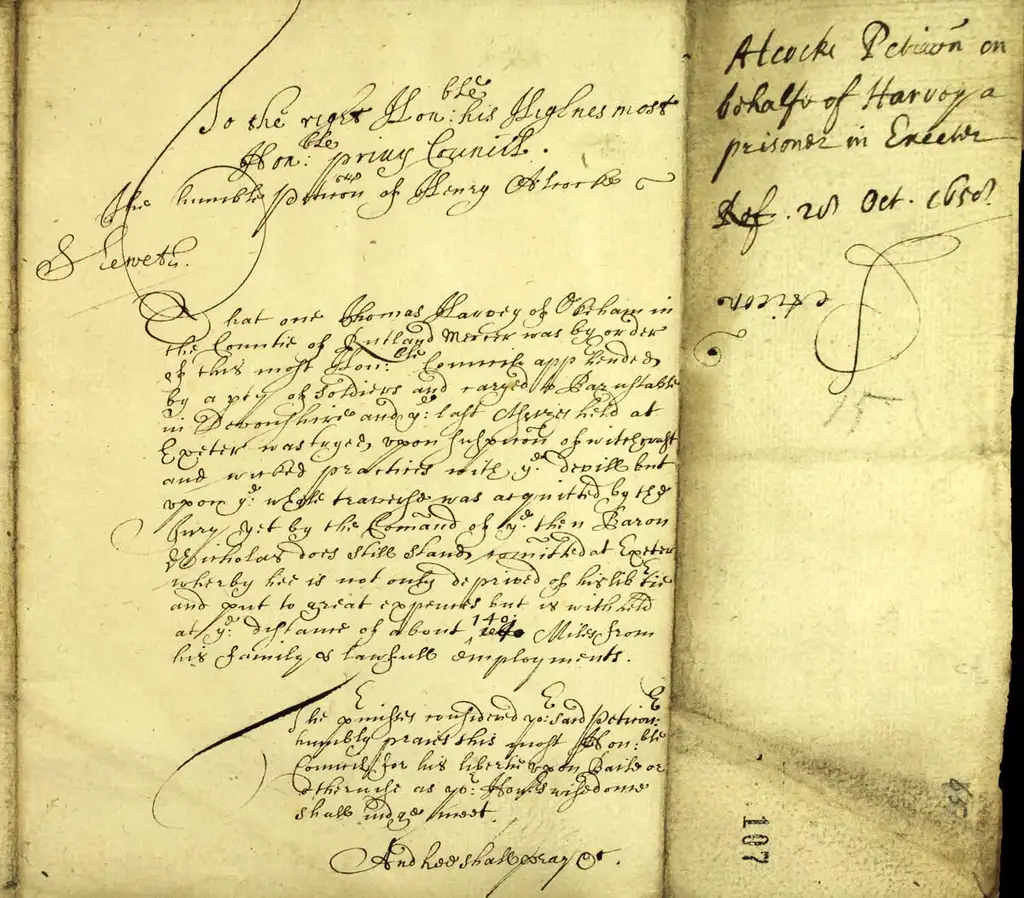 To the right Hon:ble his Highnes most
Hon:ble privy Councill.
The humble Peticon of Henry Alcocke
Sheweth.
That one Thomas Harvey of Okeham in
the Countie of Rutland Mercer was by order
of this most Hon:ble Councill apphended
by a pty of Soldiers and caryed to Barnstable
in Devonshire and ye: last Assizes held at
Exeter was tryed, vpon suspicon of witchcraft
and wicked practices with ye: devill but
vpon ye: whole traverse was acquitted by the
Jury yet by the Comand of ye: then Baron
Nicholas does still stand comitted at Exeter
wherby hee is not only deprived of his libtie
and put to great expences but is withheld
at ye: distance of about 140: Miles from
his family & lawfull employments.
The pmisses considered yo:r said Peticon:r
humbly praies this most Hon:ble
Councill for his libertie vpon Baile or
otherwise as yo:r Hono:rs wisedome
shall iudge meet.
And hee shall pray &c.
Alcocke Peticon on
behalfe of Harvey a
prisoner in Exeter
Ref. 28 Oct. 1658.
Peticon
157
107